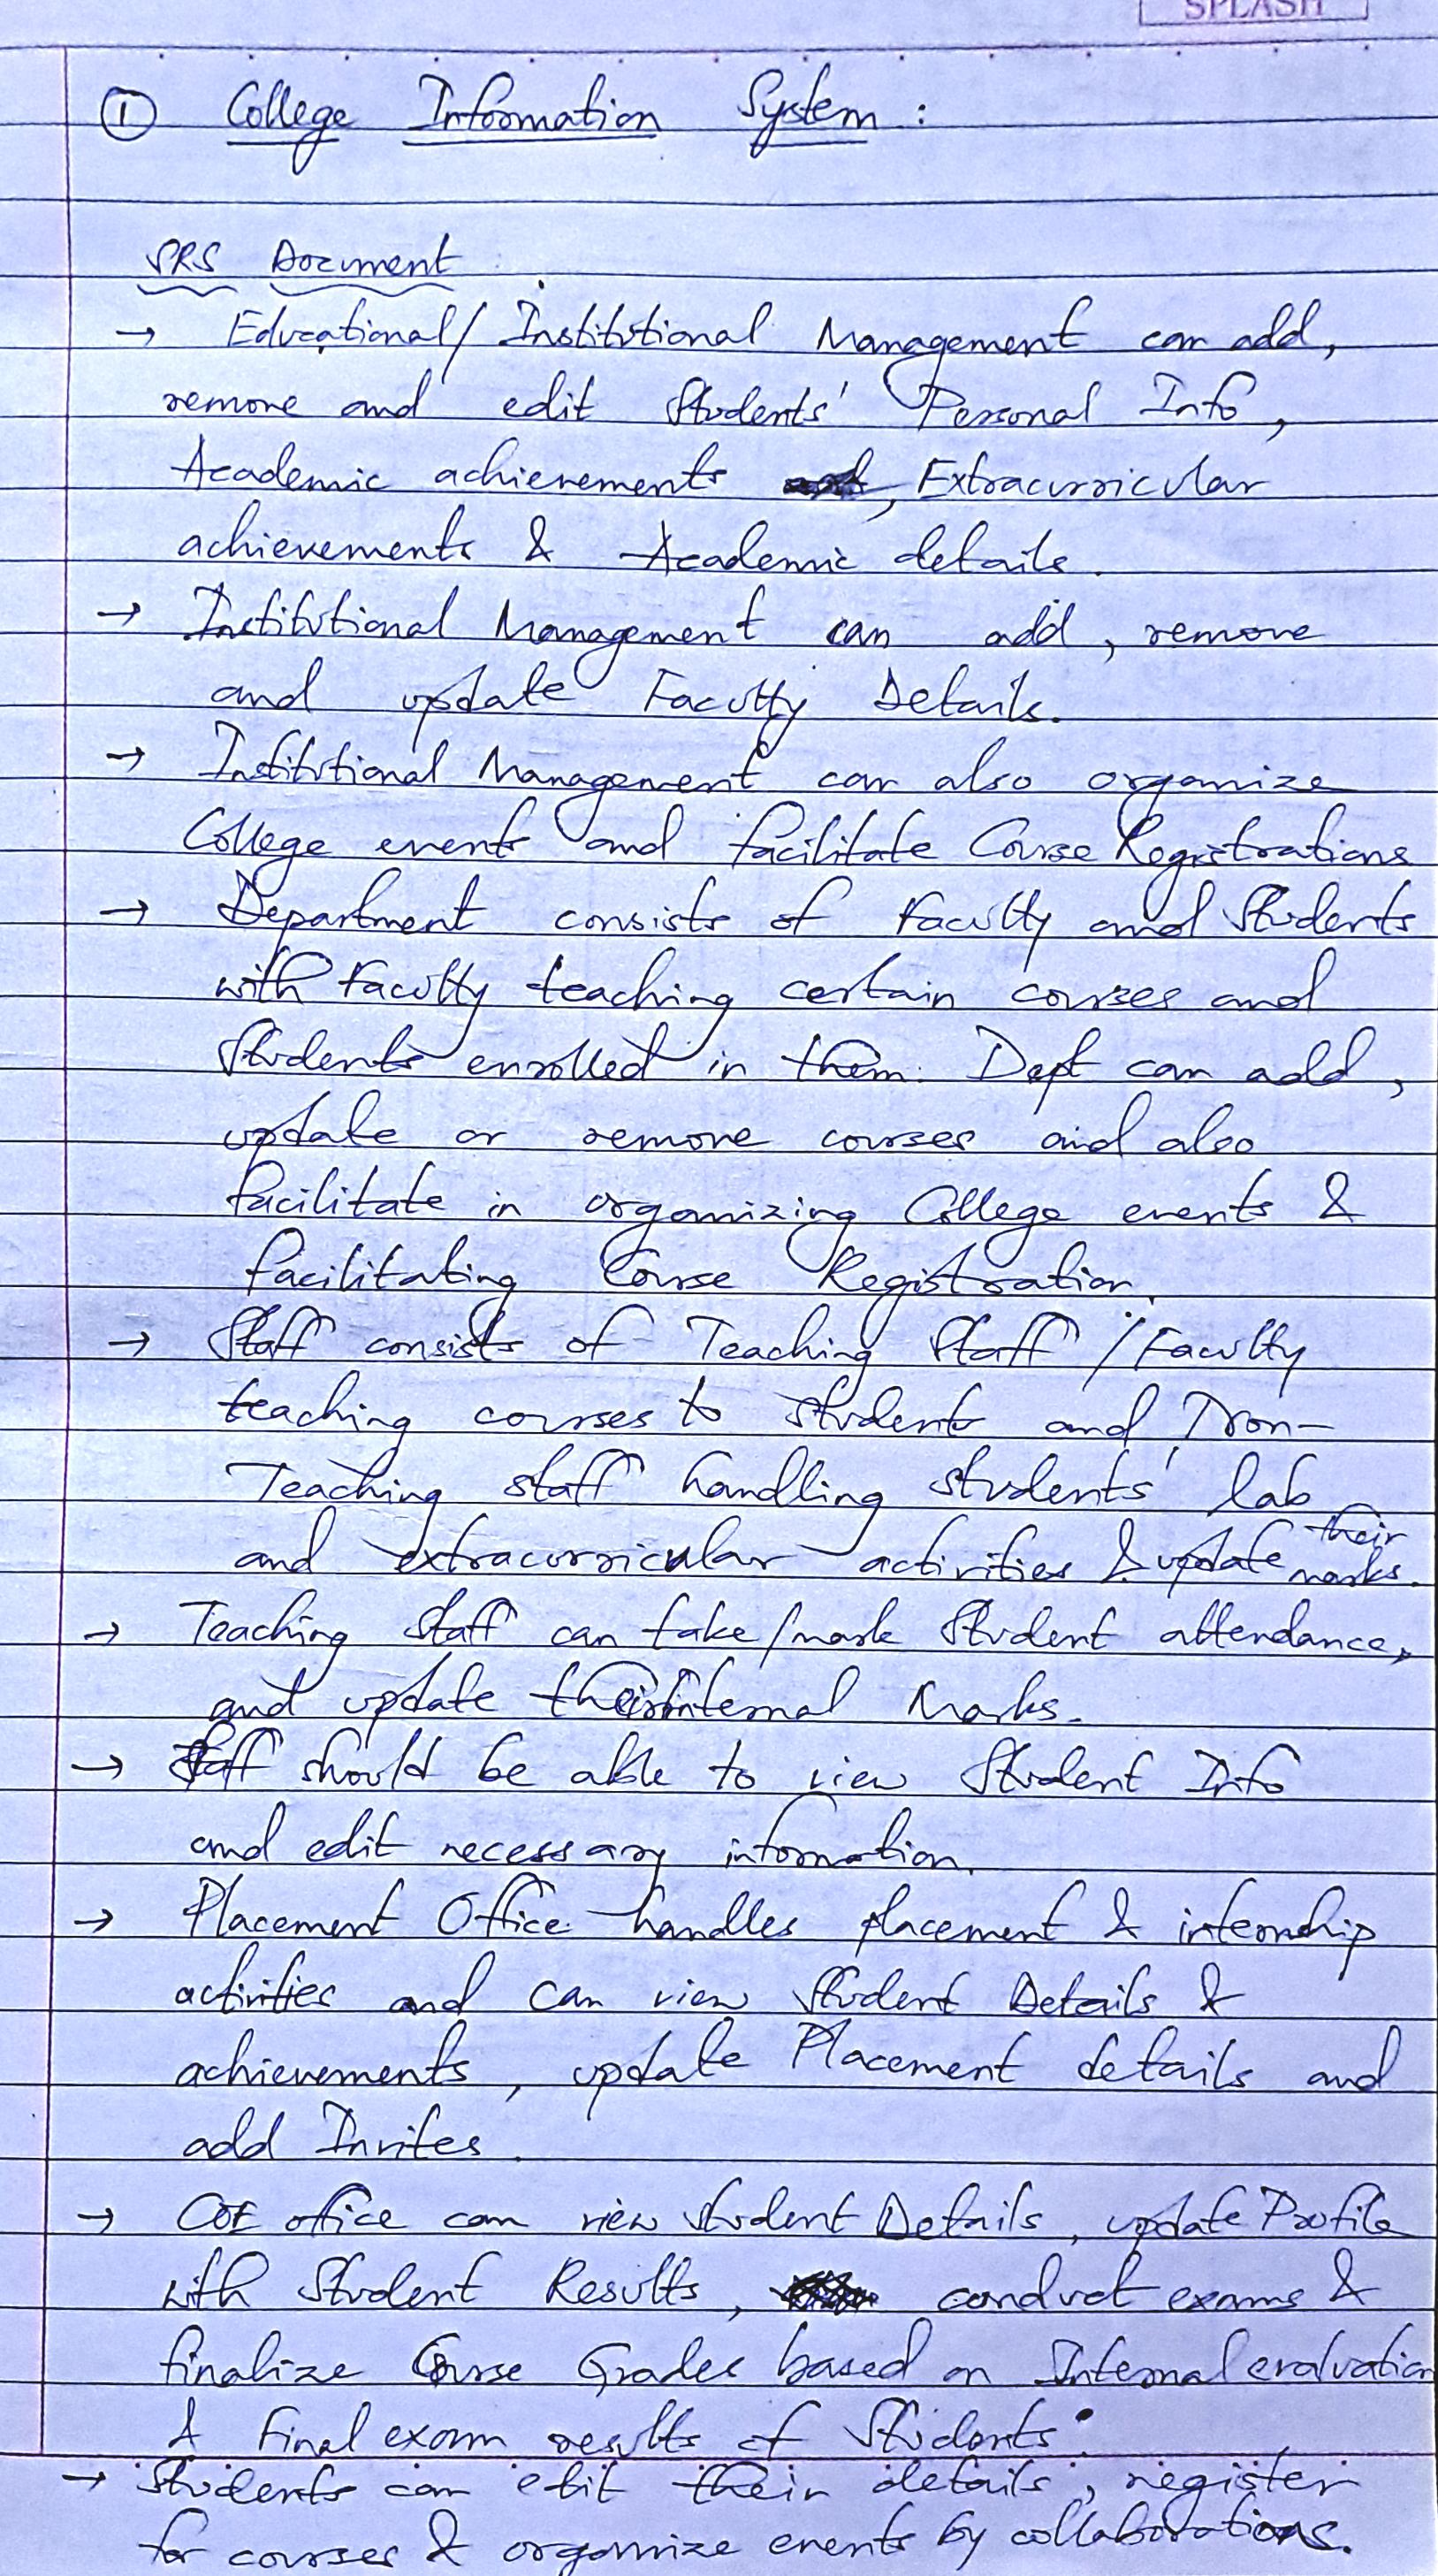 SPLASH
① College Information System :
SRS Document :
→ Educational/Institutional Management can add,
remove and edit Students' Personal Info,
Academic achievements, Extracurricular
achievements & Academic details.
→ Institutional Management can add, remove
and update Faculty Details.
→ Institutional Management can also organize
College events and facilitate Course Registrations
→ Department consists of Faculty and Students
with Faculty teaching certain courses and
Students enrolled in them. Dept can add,
update or remove courses and also
facilitate in organizing College events &
facilitating Course Registration.
→ Staff consists of Teaching Staff / Faculty
teaching courses to students and Non-
Teaching staff handling students' lab
and extracurricular activities & update their marks.
→ Teaching Staff can take/mark Student attendance,
and update their internal Marks.
→ Staff should be able to view Student Info
and edit necessary information.
→ Placement Office handles placement & internship
activities and can view Student Details &
achievements, update Placement details and
add Invites.
→ COE office can view Student Details, update Profile
with Student Results, conduct exams &
finalize Course Grades based on Internal evaluation
& Final exam results of Students.
→ Students can edit their details, register
for courses & organize events by collaborations.